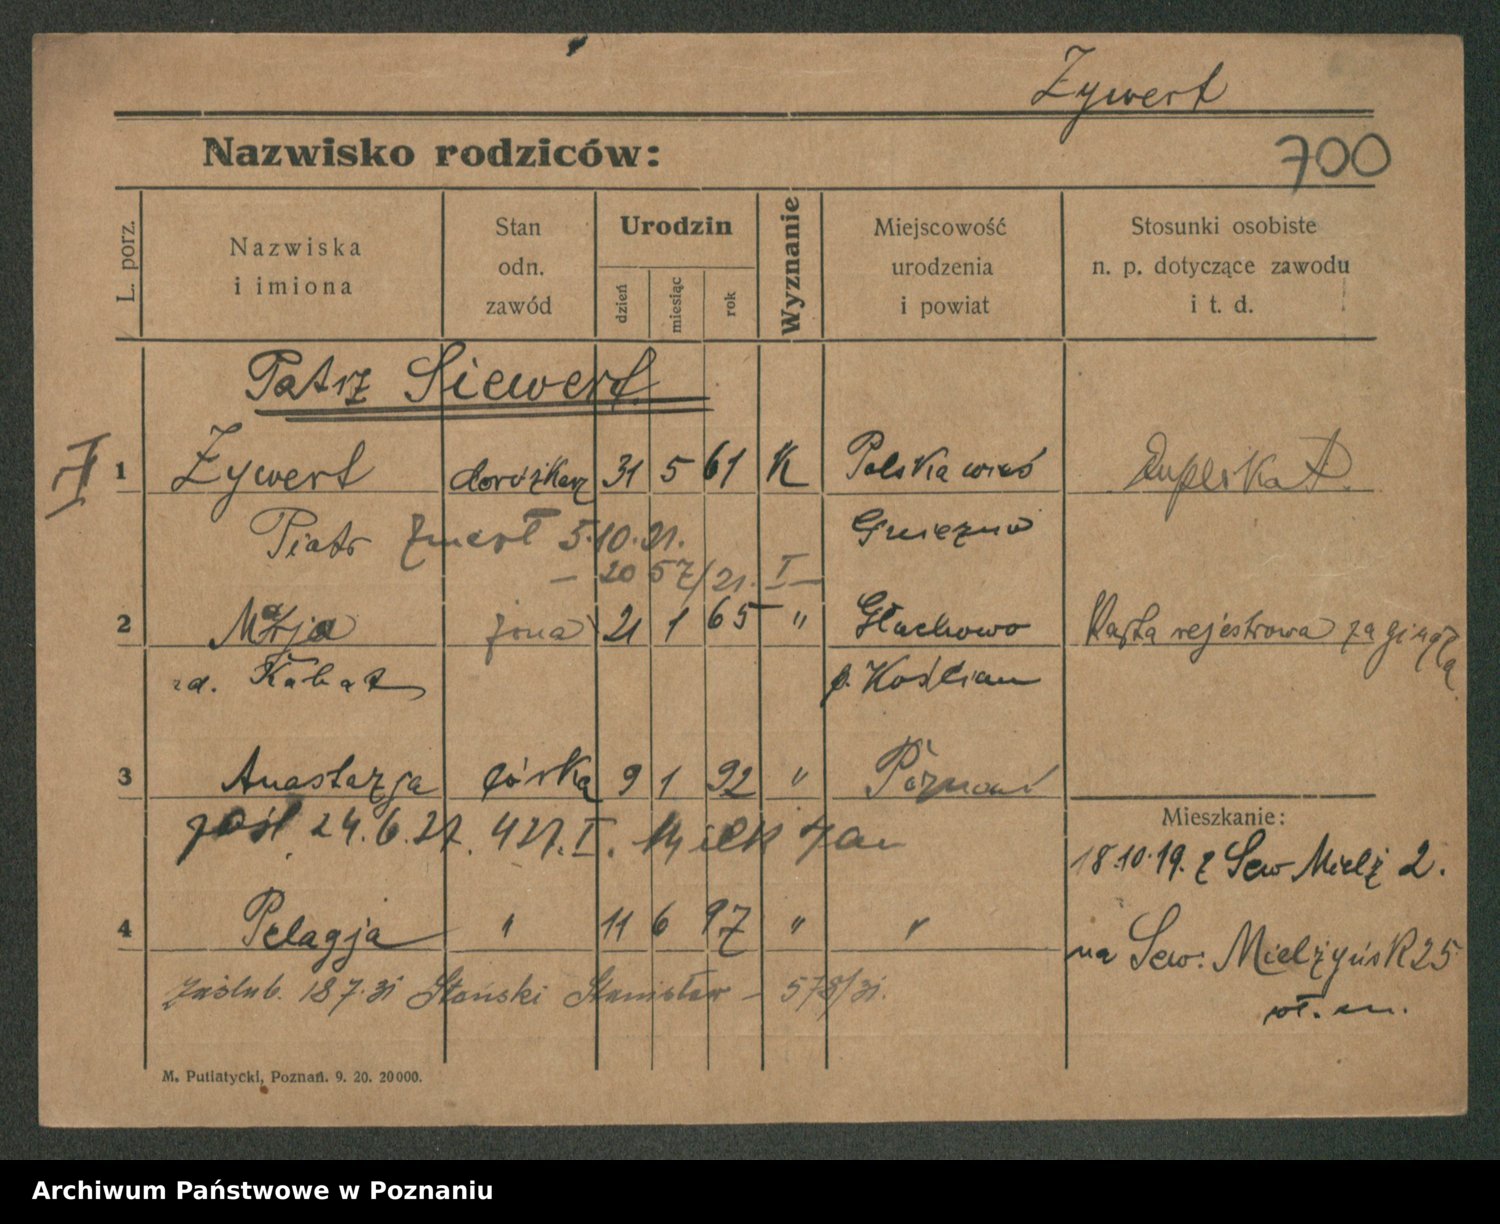 Żywert
Nazwisko rodziców:
700
L. porz.
Nazwiska
i imiona
Stan
odn.
zawód
Urodzin
dzień
miesiąc
rok
Wyznanie
Miejscowość
urodzenia
i powiat
Stosunki osobiste
n. p. dotyczące zawodu
i t. d.
Patrz Siewert
1 Żywert dorożkarz 31 5 61 K Polska wieś Duplikat.
Piotr zmarł 5.10.21. Gniezno
— 2057/21. I —
2 Marja żona 21 1 65 " Głuchowo Karta rejestrowa zaginęła
Kabat p. Kościan
3 Anastazja córka 9 1 92 " Poznań
Mieszkanie:
24.6.21. 421. I.
18.10.19. z Sew Mielż 2.
4 Pelagja " 11 6 97 " "
na Sew. Mielżyńsk 25
zaślub. 18 7.31 Słoński Stanisław – 578/31.
wł. m.
M. Putiatycki, Poznań. 9. 20. 20000.
Archiwum Państwowe w Poznaniu